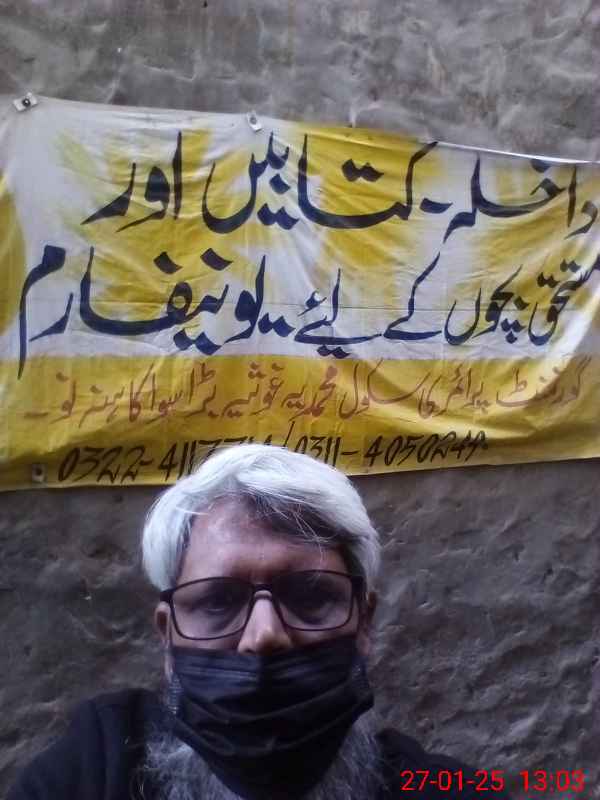 داخلہ - کتابیں اور
مستحق بچوں کے لیئے - یونیفارم
گورنمنٹ پرائمری سکول محمدیہ غوثیہ بڑا سوا کاہنہ نو -
0322-4117714/0311-4050249
27-01-25 13:03